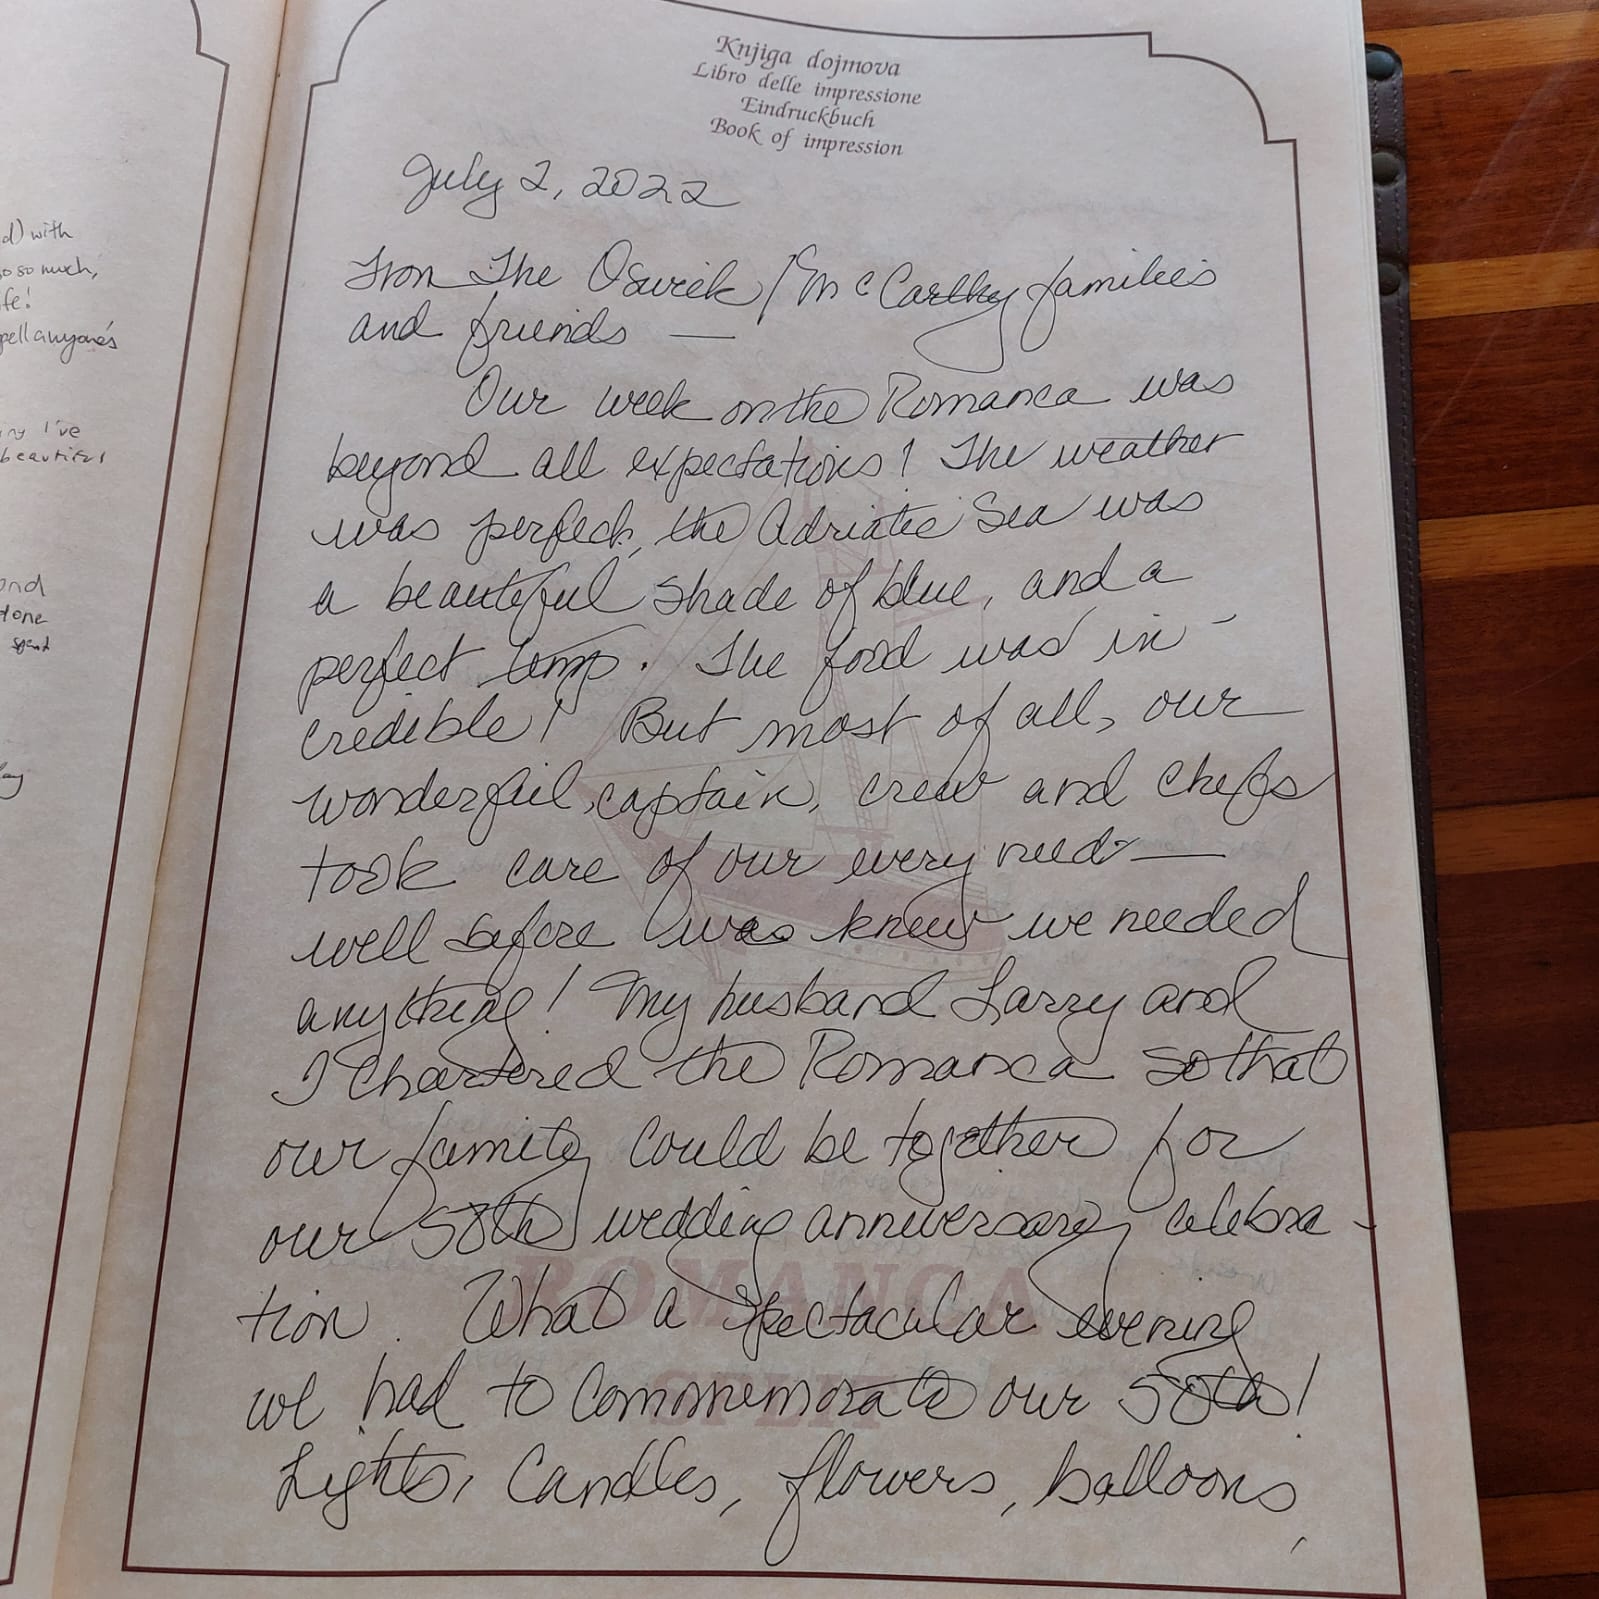 d) with
so so much,
ife!
pell anyone's
I've
beautiful
ond
done
spend
Knjiga dojmova
Libro delle impressione
Eindruckbuch
Book of impression
July 2, 2022
From The Oswiek/McCarthy families
and friends —
Our week on the Romanca was
beyond all expectations! The weather
was perfect, the Adriatic Sea was
a beautiful shade of blue, and a
perfect temp. The food was in-
credible! But most of all, our
wonderful captain, crew and chefs
took care of our every need —
well before was knew we needed
anything! My husband Larry and
I chartered the Romanca so that
our family could be together for
our 50th wedding anniversary celebra-
tion. What a spectacular evening
we had to commemorate our 50th!
Lights, Candles, flowers, balloons,
ROMANCA
SPLIT